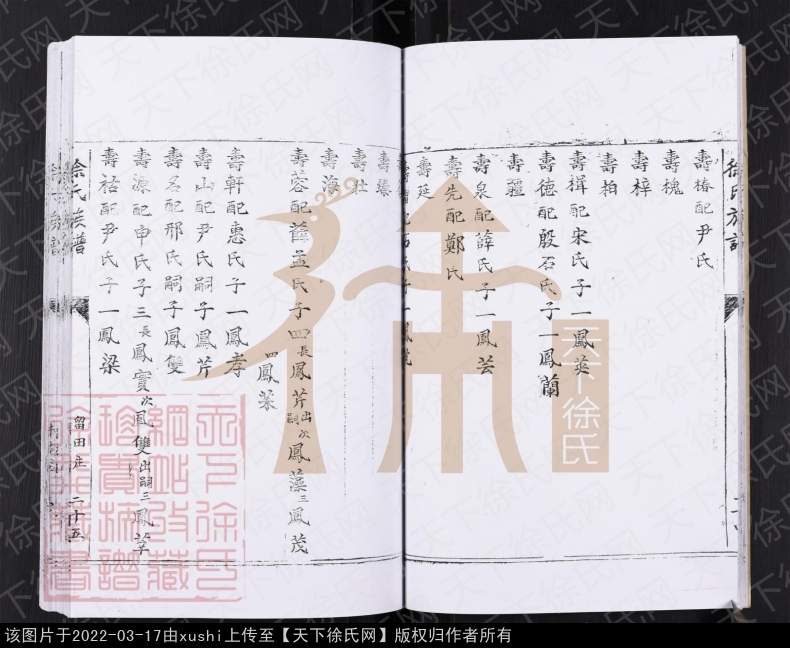 徐氏族譜
壽椿配尹氏
壽槐
壽梓
壽柏
壽楫配宋氏子一鳳英
壽德配殷石氏子一鳳蘭
壽疆
壽泉配薛氏子一鳳芸
壽先配鄭氏
壽延
壽臻
壽社
壽海
壽蓉配薛孟氏子四長鳳芹出嗣次鳳藻三鳳茂
四鳳菉
壽軒配惠氏子一鳳孝
壽山配尹氏嗣子鳳芹
壽名配邢氏嗣子鳳雙
壽源配申氏子三長鳳實次鳳雙出嗣三鳳莘
壽祜配尹氏子一鳳梁
徐氏族譜
留田庄
二十五
天下徐氏
天下徐氏网
该图片于2022-03-17由xushi上传至【天下徐氏网】版权归作者所有